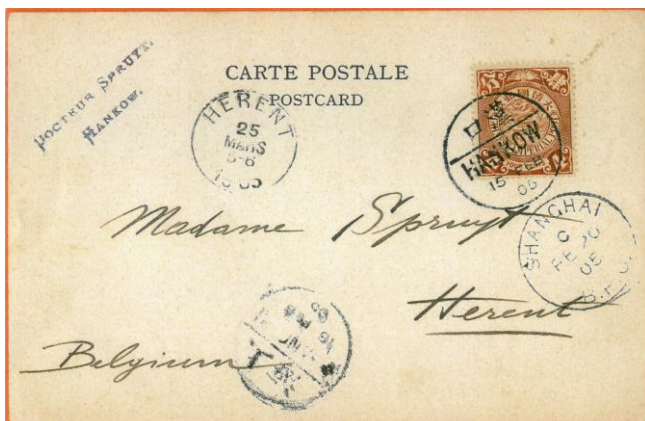 DOCTEUR SPRUYT.
HANKOW.
CARTE POSTALE
POSTCARD
HERENT
25
MARS
1905
漢口
HANKOW
15 FEB
05
SHANGHAI
C
FE 20
05
B.P.O.
Madame Spruyt
Herent
Belgium